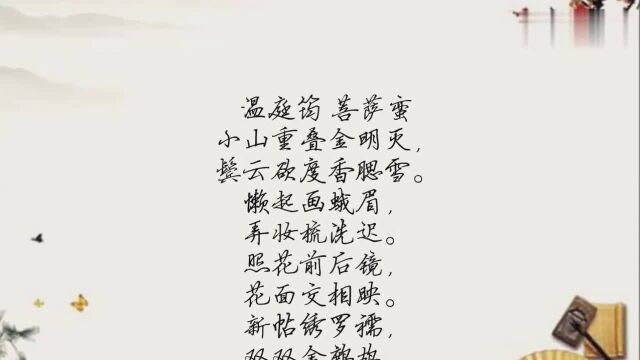 温庭筠 菩萨蛮
小山重叠金明灭，
鬓云欲度香腮雪。
懒起画蛾眉，
弄妆梳洗迟。
照花前后镜，
花面交相映。
新帖绣罗襦，
双双金鹧鸪